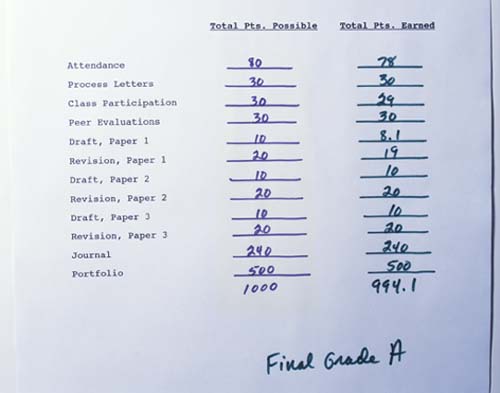 Total Pts. Possible Total Pts. Earned
Attendance 80 78
Process Letters 30 30
Class Participation 30 29
Peer Evaluations 30 30
Draft, Paper 1 10 8.1
Revision, Paper 1 20 19
Draft, Paper 2 10 10
Revision, Paper 2 20 20
Draft, Paper 3 10 10
Revision, Paper 3 20 20
Journal 240 240
Portfolio 500 500
1000 994.1
Final Grade A